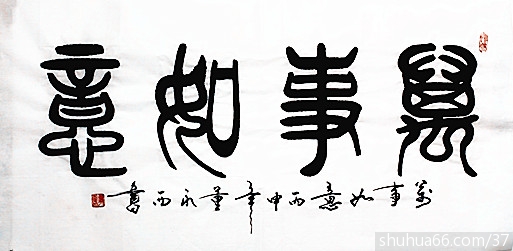 萬事如意
萬事如意丙申年董永西書
shuhua66.com/37